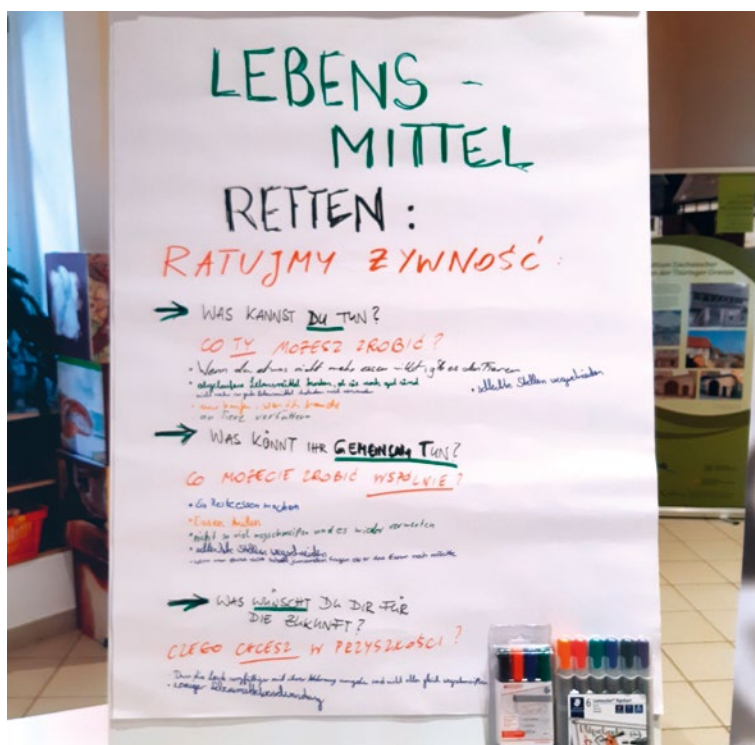 LEBENS -
MITTEL
RETTEN :
RATUJMY ŻYWNOŚĆ :
→ WAS KANNST DU TUN?
CO TY MOŻESZ ZROBIĆ ?
• Wenn du etwas nicht mehr essen willst, gib es den Tieren
• abgelaufene Lebensmittel testen, ob sie noch gut sind
• schlechte Stellen wegschneiden
• nur kaufen, was ich brauche
an Tiere verfüttern
→ WAS KÖNNT IHR GEMEINSAM TUN?
CO MOŻECIE ZROBIĆ WSPÓLNIE ?
• Ein Restessen machen
• Essen teilen
• nicht so viel wegschmeißen und es wieder verwerten
• schlechte Stellen wegschneiden
→ WAS WÜNSCHT DU DIR FÜR
DIE ZUKUNFT?
CZEGO CHCESZ W PRZYSZŁOŚCI ?
• Dass die Leute sorgfältiger mit ihrer Nahrung umgehen und nicht alles gleich wegschmeißen
• weniger Lebensmittelverschwendung
STAEDTLER
6